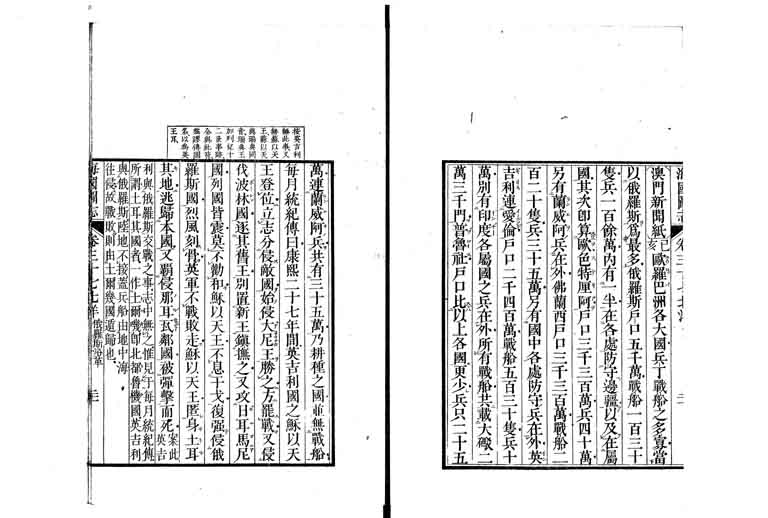 澳門新聞紙己亥歐羅巴洲各大國兵丁戰船之多寡當
以俄羅斯爲最多俄羅斯戶口五千萬戰船一百三十
隻兵一百餘萬內有一半在各處防守邊疆以及在屬
國其次卽算歐色特厘阿戶口三千三百萬兵四十萬
另有蘭威阿兵在外佛蘭西戶口三千三百萬戰船二
百二十隻兵三十五萬另有國中各處防守兵在外英
吉利連愛倫戶口二千四百萬戰船五百三十隻兵十
萬別有印度各屬國之兵在外所有戰船共載大礮二
萬三千門普魯社戶口比以上各國更少兵只二十五
萬連蘭威阿兵共有三十五萬乃耕種之國並無戰船
每月統紀傳曰康熙二十七年間英吉利國之穌以天
王登位立志分侵敵國始侵大尼王勝之方罷戰又侵
伐波林國逐其舊王別置新王鎭撫之又攻日耳馬尼
國列國皆震莫不勸和穌以天王不息干戈復强侵俄
羅斯國烈風刻骨英軍不戰敗走穌以天王匿身土耳
其地逃歸本國又覇侵那耳瓦鄰國被彈擊而死案此英吉
利與俄羅斯交戰之事志中無之惟見于每月統紀傳
所謂土耳其國者一作土爾幾卽北都魯機國英吉利
與俄羅斯陸地不接蓋兵船由地中海
往侵故戰敗則由土爾幾國遁歸也
海國圖志 卷三十七 北洋 俄羅斯沿革